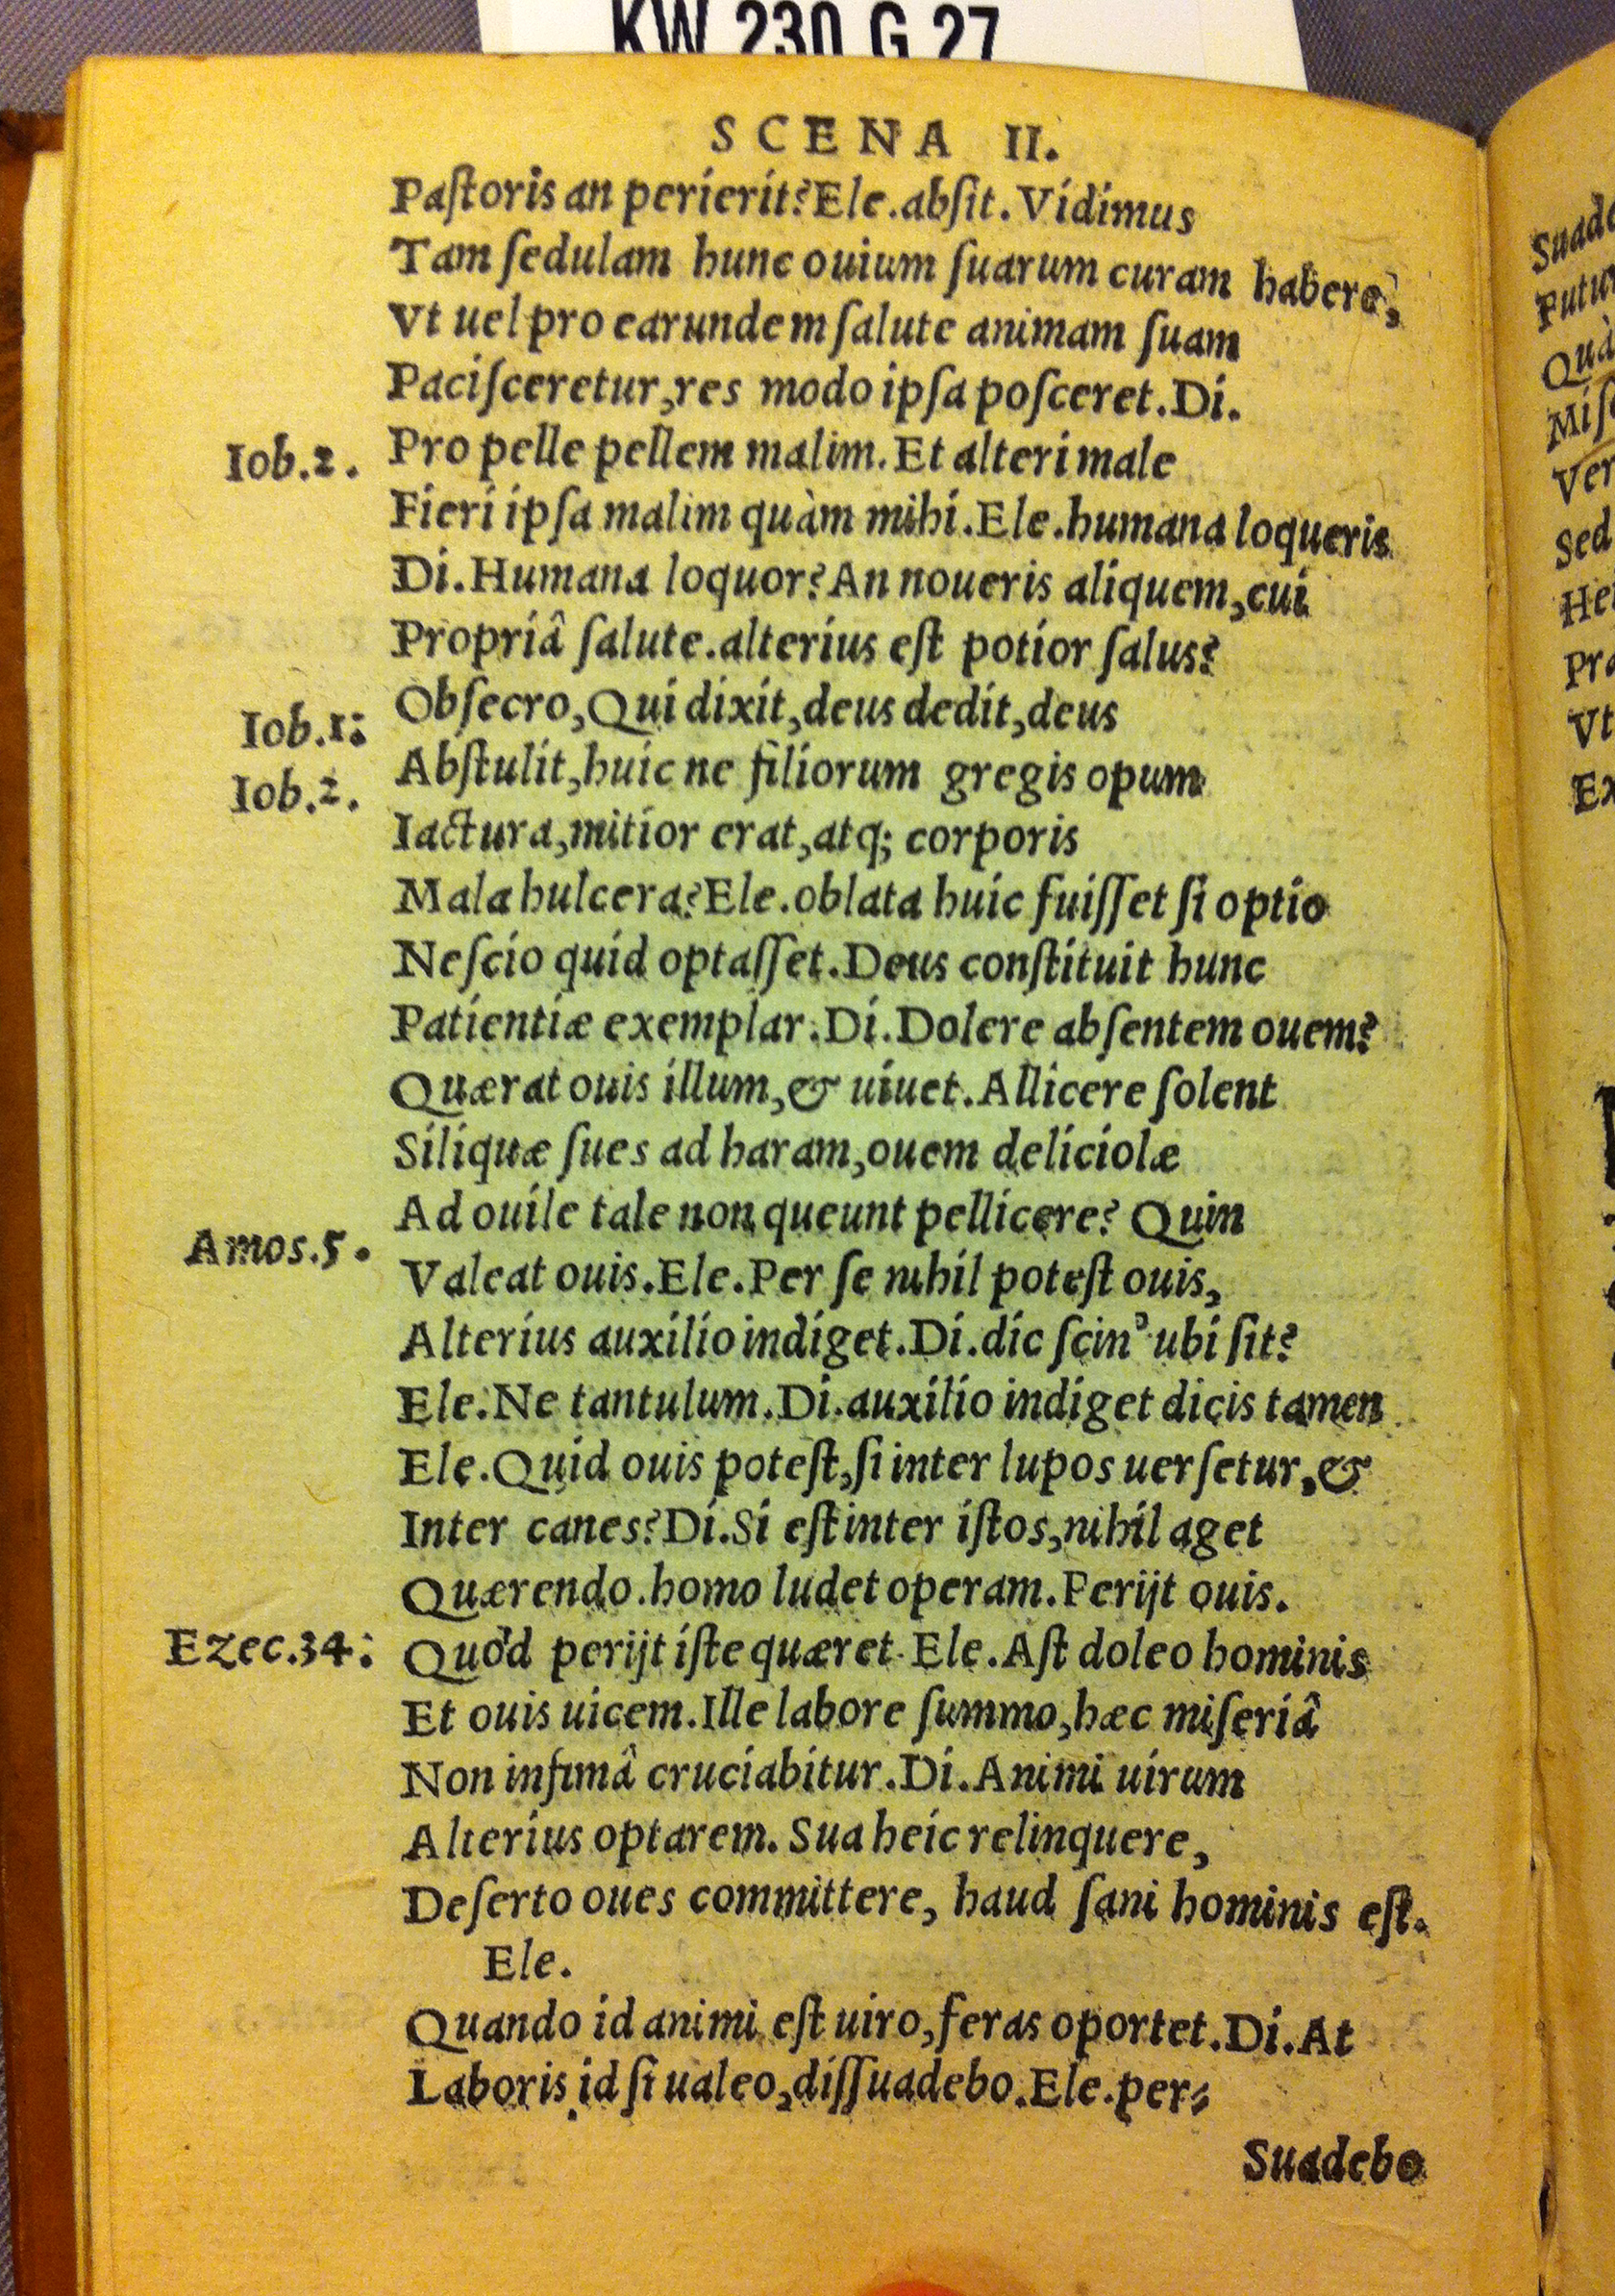 KW 230 G 27
SCENA II.
Paſtoris an perierit? Ele. abſit. Vidimus
Tam ſedulam hunc ouium ſuarum curam habere,
Vt uel pro earundem ſalute animam ſuam
Paciſceretur, res modo ipſa poſceret. Di.
Iob. 2. Pro pelle pellem malim. Et alteri male
Fieri ipſa malim quàm mihi. Ele. humana loqueris
Di. Humana loquor? An noueris aliquem, cui
Propriâ ſalute. alterius eſt potior ſalus?
Iob. 1: Obſecro, Qui dixit, deus dedit, deus
Iob. 2. Abſtulit, huic ne filiorum gregis opum
Iactura, mitior erat, atq; corporis
Mala hulcera? Ele. oblata huic fuiſſet ſi optio
Neſcio quid optaſſet. Deus conſtituit hunc
Patientiæ exemplar. Di. Dolere abſentem ouem?
Quærat ouis illum, & uiuet. Allicere ſolent
Siliquæ ſues ad haram, ouem deliciolæ
Ad ouile tale non queunt pellicere? Quin
Amos. 5. Valeat ouis. Ele. Per ſe nihil poteſt ouis,
Alterius auxilio indiget. Di. dic ſcin' ubi ſit?
Ele. Ne tantulum. Di. auxilio indiget dicis tamen
Ele. Quid ouis poteſt, ſi inter lupos uerſetur, &
Inter canes? Di. Si eſt inter iſtos, nihil aget
Quærendo. homo ludet operam. Perijt ouis.
Ezec. 34: Quod perijt iſte quæret. Ele. Aſt doleo hominis
Et ouis uicem. Ille labore ſummo, hæc miſeriâ
Non infimâ cruciabitur. Di. Animi uirum
Alterius optarem. Sua heic relinquere,
Deſerto oues committere, haud ſani hominis eſt.
Ele.
Quando id animi eſt uiro, feras oportet. Di. At
Laboris id ſi ualeo, diſſuadebo. Ele. per⸗
Suadebo
Sed
Vt